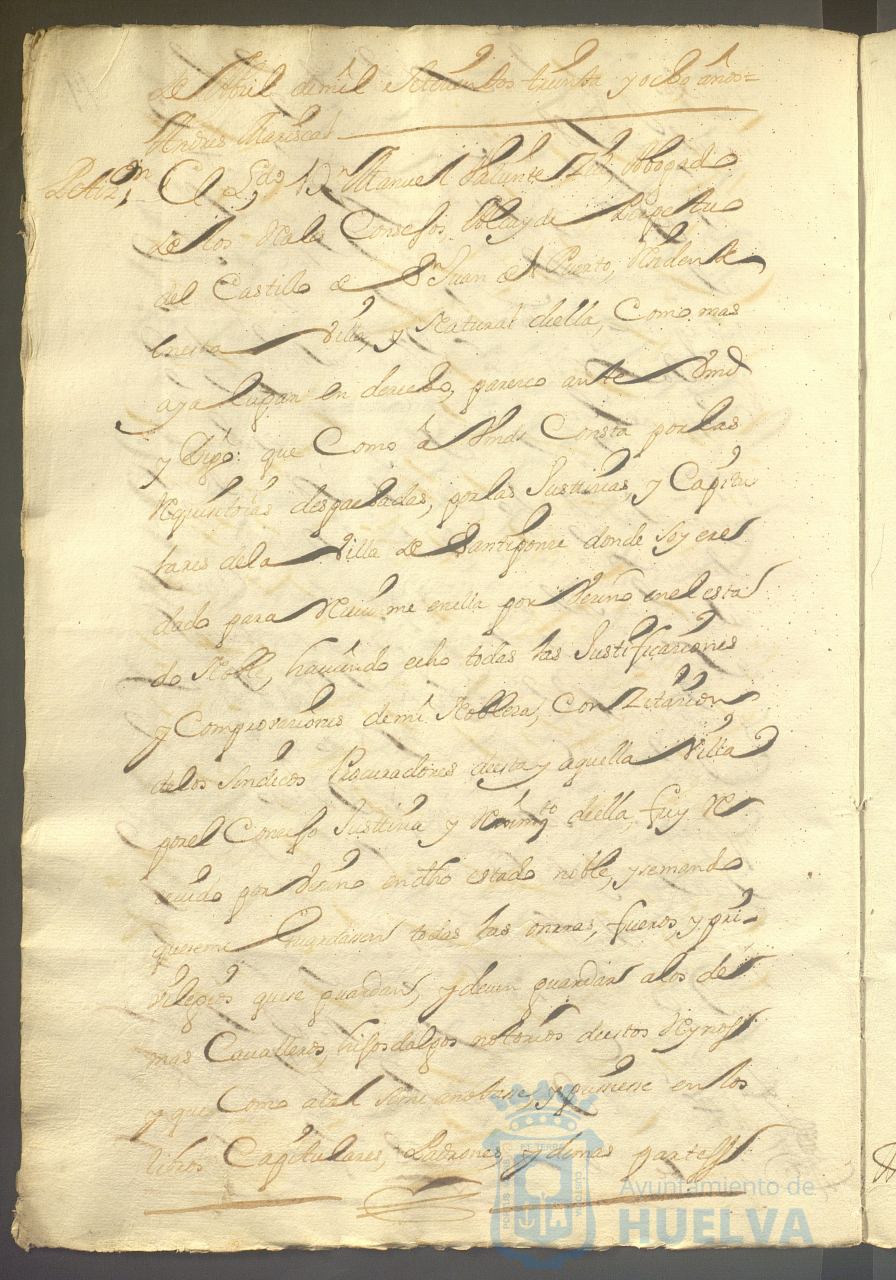 de Abril de mil Setecientos treinta y ocho años=
Andres Mariscal
Petizn El Ldo Dn Manuel Valiente Abogado
de los Rales Consejos, Alcayde Perpetuo
del Castillo de Sn Juan del Puerto, Residente
en esta Villa, y Natural de ella, Como mas
aya lugar en derecho, parezco ante Vmd
y Digo que Como â Vmds Consta por las
Requisitorias despachadas, por las Justizias, y Capitu
lares de la Villa de Santiponze donde soy ereδ
dado para Reciuirme en ella por Vezino en el esta
do Noble, hauiendo echo todas las Justificaciones
y Comprovaciones de mi Nobleza, Con Zitazion
de los Sindicos Procuradores de esta y aquella Villa
por el Consejo Justizia y Reximto de ella, fuy Re
ceuido por Vezino en dho estado noble, y se mando
que se me Guardasen todas las onrras, fueros, y pri-
vilegios que se guardan, y deuen guardar a los de
mas Cavalleros, hijosdalgos notorios de estos Reynos
y que Como a tal se me anotase, y pusiese en los
libros Capitulares, Padrones, y demas partes
Ayuntamiento de
HUELVA